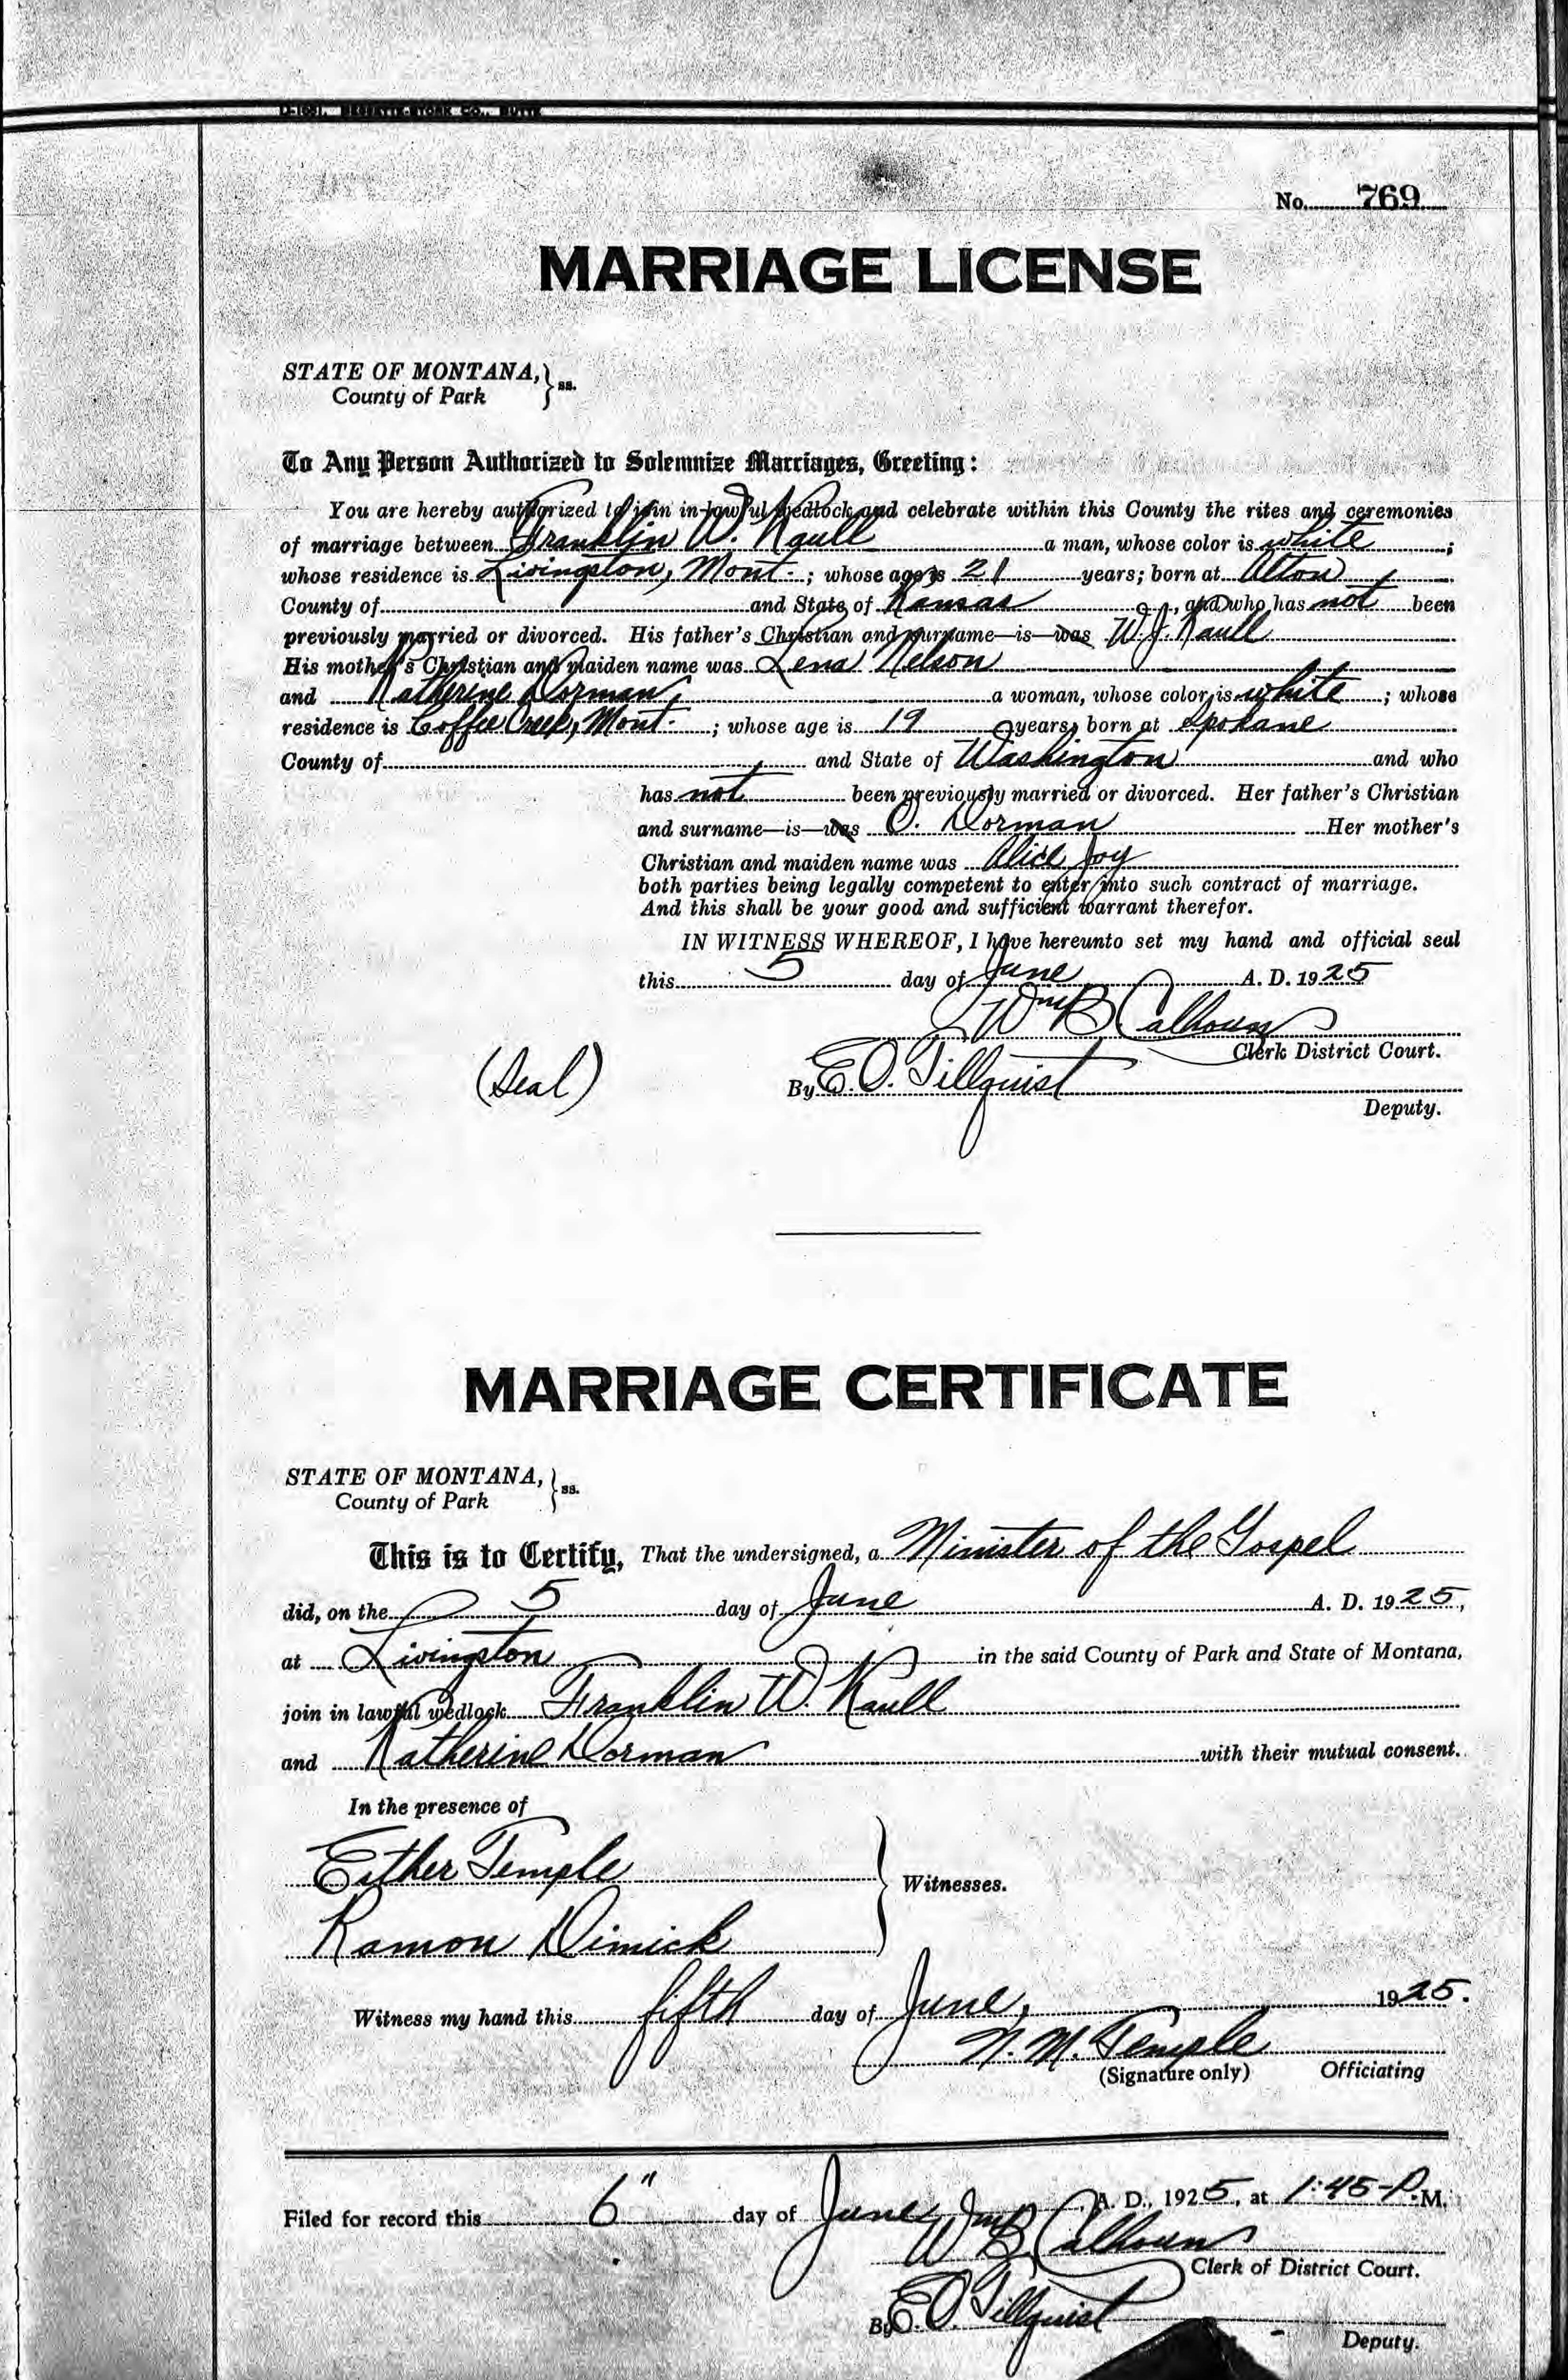 No. 769
MARRIAGE LICENSE
STATE OF MONTANA, } ss.
County of Park
To Any Person Authorized to Solemnize Marriages, Greeting:
You are hereby authorized to join in lawful wedlock and celebrate within this County the rites and ceremonies
of marriage between Franklin W. Kaull a man, whose color is white ;
whose residence is Livingston, Mont. ; whose age is 21 years; born at Alton,
County of and State of Kansas, and who has not been
previously married or divorced. His father's Christian and surname—is—was W. J. Kaull
His mother's Christian and maiden name was Lena Nelson
and Katherine Dorman, a woman, whose color is white ; whose
residence is Coffee Creek, Mont. ; whose age is 19 years, born at Spokane
County of and State of Washington and who
has not been previously married or divorced. Her father's Christian
and surname—is—was O. Dorman Her mother's
Christian and maiden name was Alice Joy
both parties being legally competent to enter into such contract of marriage.
And this shall be your good and sufficient warrant therefor.
IN WITNESS WHEREOF, I have hereunto set my hand and official seal
this 5 day of June A. D. 1925
Wm B Calhoun
Clerk District Court.
(Seal) By E. O. Tillquist
Deputy.
MARRIAGE CERTIFICATE
STATE OF MONTANA, } ss.
County of Park
This is to Certify, That the undersigned, a Minister of the Gospel
did, on the 5 day of June A. D. 1925,
at Livingston in the said County of Park and State of Montana,
join in lawful wedlock Franklin W. Kaull
and Katherine Dorman with their mutual consent.
In the presence of
Esther Temple
Witnesses.
Ramon Dimick
Witness my hand this fifth day of June, 1925.
N. M. Temple
(Signature only) Officiating
Filed for record this 6" day of June A. D., 1925, at 1:45 P.M.
Wm B Calhoun
Clerk of District Court.
By E. O. Tillquist
Deputy.